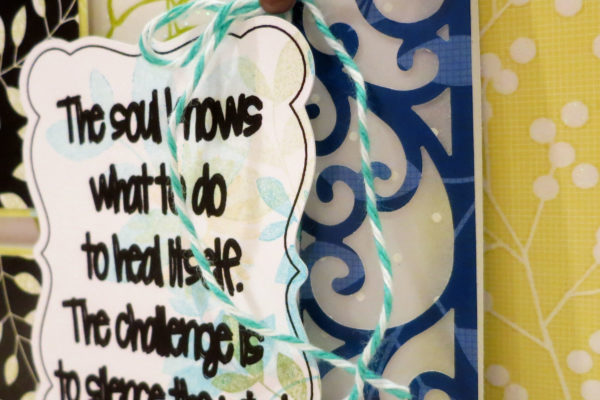 The soul knows
what to do
to heal itself.
The challenge is
to silence the